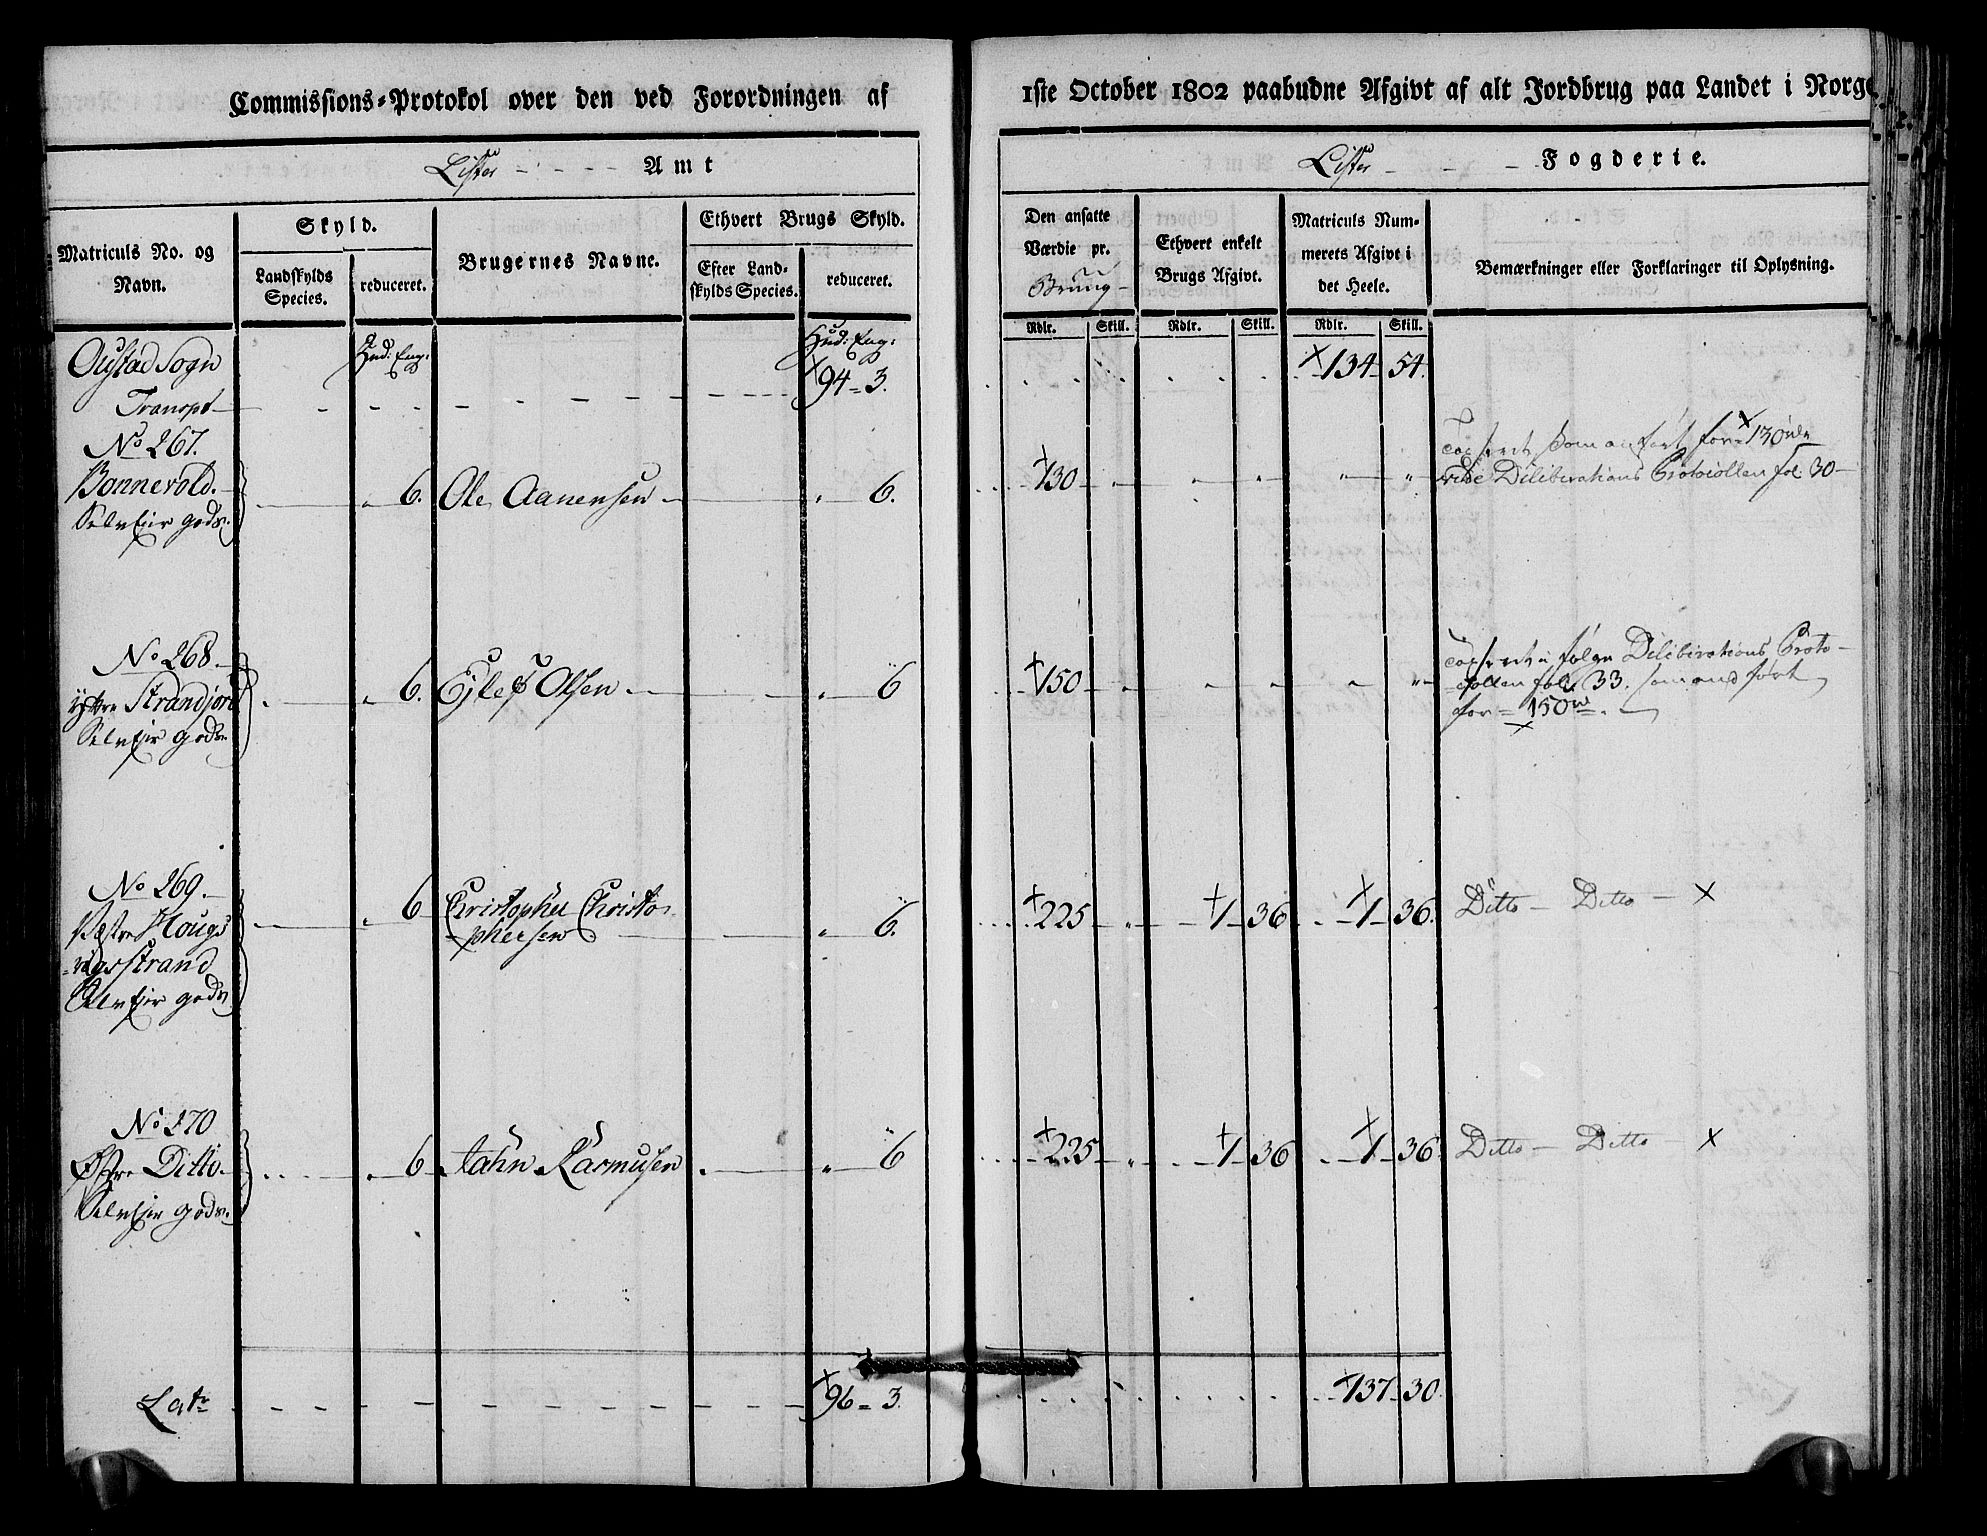 Commissions-Protokol over den ved Forordningen af
1ste October 1802 paabudne Afgivt af alt Jordbrug paa Landet i Norge
Lister Amt
Lister Fogderie.
Matriculs No. og Navn.
Skyld.
Landskylds Species.
reduceret.
Brugernes Navne.
Ethvert Brugs Skyld.
Efter Landskylds Species.
reduceret.
Den ansatte Værdie pr.
Brüug
Ethvert enkelt Brugs Afgivt.
Matriculs Nummerets Afgivt i det Heele.
Bemærkninger eller Forklaringer til Oplysning.
Rdlr. Skill. Rdlr. Skill. Rdlr. Skill.
Oustad Sogn Hud: Eng: Hud: Eng:
Transpt 94 = 3. 134 54.
No 267.
Bonnevold. 6. Ole Aanensen 6. 130 " " " " "
Selv Eier gods.
Taxeret som anført for 130 rdr
vide Deliberations Protocollen fol 30
No 268
ÿttre Strandjord 6. Ejlef Olsen 6 150 " " " " "
Selv Eier gods.
Taxeret i følge Deliberations Proto-
collen fol. 33. som anført
for 150 rd.
No 269
Vestre Hougs 6 Christopher Christo 6. 225 " 1 36 1 36. Ditto Ditto
phersen
vigsstrand
Selv Eier gods
No 270
Østre Ditto. 6 Jahn Rasmusen 6 225 " 1 36 1 36 Ditto Ditto
Selv Eier gods.
Latr 96 = 3. 137 30.